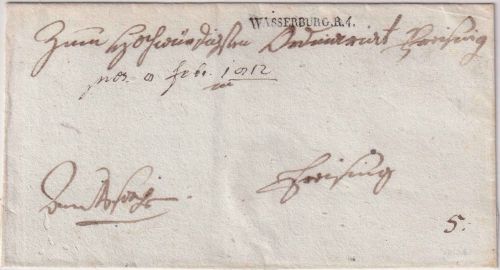 WASSERBURG.R.4.
Zum Hochwürdigsten Ordinariat Freising
pros. 9 febr. 1812
Freising
5.